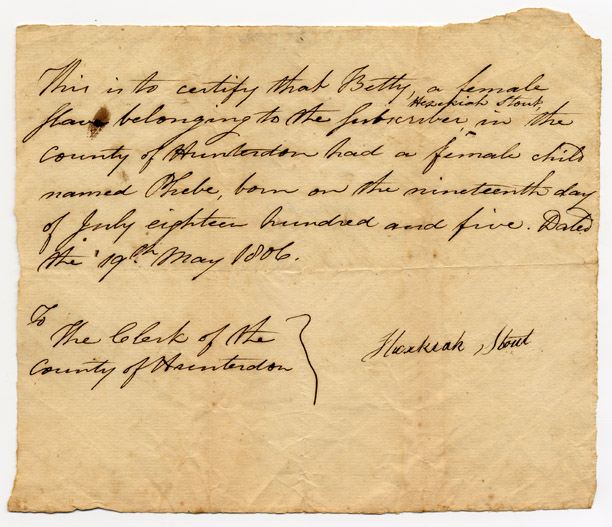 This is to certify that Betty, a female
Hezekiah Stout,
slave belonging to the subscriber, in the
County of Hunterdon had a female child
named Phebe, born on the nineteenth day
of July eighteen hundred and five. Dated
the 19th May 1806.
To
The Clerk of the
County of Hunterdon
Hezekiah Stout